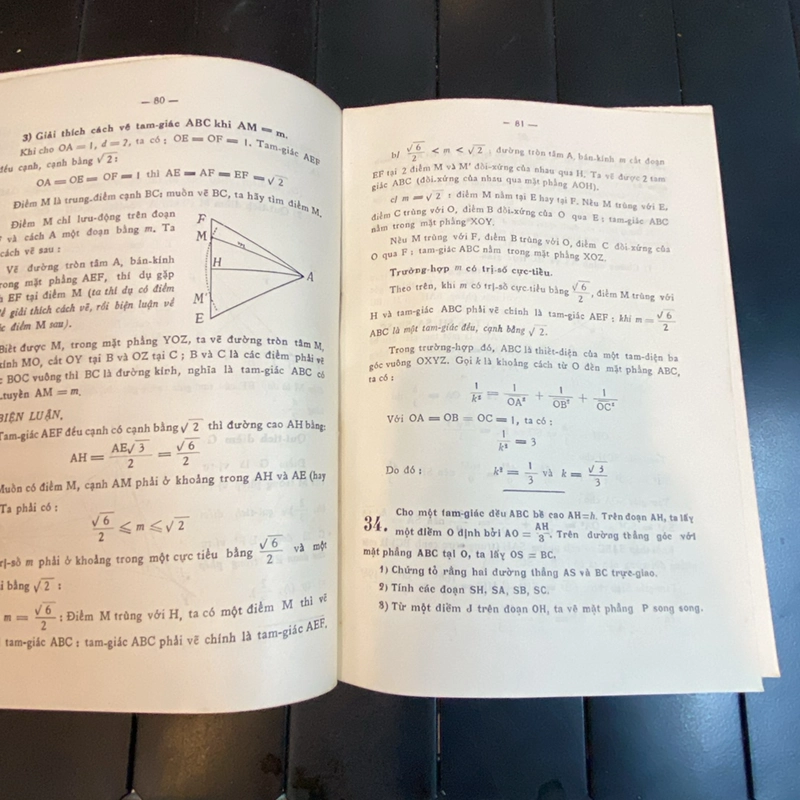 — 80 —
3) Giải thích cách vẽ tam-giác ABC khi AM = m.
Khi cho OA = 1, d = 2, ta có : OE = OF = 1. Tam-giác AEF
đều cạnh, cạnh bằng √2 :
OA = OE = OF = 1 thì AE = AF = EF = √2
Điểm M là trung-điểm cạnh BC; muốn vẽ BC, ta hãy tìm điểm M.
Điểm M chỉ lưu-động trên đoạn
và cách A một đoạn bằng m. Ta
cách vẽ sau :
Vẽ đường tròn tâm A, bán-kính
trong mặt phẳng AEF, thí dụ gặp
EF tại điểm M (ta thí dụ có điểm
để giải thích cách vẽ, rồi biện luận về
các điểm M sau).
F
M
H
A
M'
E
Biết được M, trong mặt phẳng YOZ, ta vẽ đường tròn tâm M,
kính MO, cắt OY tại B và OZ tại C ; B và C là các điểm phải vẽ
BOC vuông thì BC là đường kính, nghĩa là tam-giác ABC có
tuyến AM = m.
BIỆN LUẬN.
Tam-giác AEF đều cạnh có cạnh bằng √2 thì đường cao AH bằng:
AH = AE√3/2 = √6/2
Muốn có điểm M, cạnh AM phải ở khoảng trong AH và AE (hay
Ta phải có :
√6/2 ⩽ m ⩽ √2
trị-số m phải ở khoảng trong một cực tiểu bằng √6/2 và một
bằng √2 :
m = √6/2 ; Điểm M trùng với H, ta có một điểm M thì vẽ
tam-giác ABC : tam-giác ABC phải vẽ chính là tam-giác AEF.
— 81 —
b/ √6/2 < m < √2 ; đường tròn tâm A, bán-kính m cắt đoạn
EF tại 2 điểm M và M' đối-xứng của nhau qua H. Ta vẽ được 2 tam
giác ABC (đối-xứng của nhau qua mặt phẳng AOH).
c/ m = √2 : điểm M nằm tại E hay tại F. Nếu M trùng với E,
điểm C trùng với O, điểm B đối-xứng của O qua E ; tam-giác ABC
nằm trong mặt phẳng XOY.
Nếu M trùng với F, điểm B trùng với O, điểm C đối-xứng của
O qua F ; tam-giác ABC nằm trong mặt phẳng XOZ.
Trường-hợp m có trị-số cực-tiểu.
Theo trên, khi m có trị-số cực-tiểu bằng √6/2, điểm M trùng với
H và tam-giác ABC phải vẽ chính là tam-giác AEF ; khi m = √6/2
ABC là một tam-giác đều, cạnh bằng √2.
Trong trường-hợp đó, ABC là thiết-diện của một tam-diện ba
góc vuông OXYZ. Gọi k là khoảng cách từ O đến mặt phẳng ABC,
ta có :
1/k² = 1/OA² + 1/OB² + 1/OC²
Với OA = OB = OC = 1, ta có :
1/k² = 3
Do đó : k² = 1/3 và k = √3/3
34. Cho một tam-giác đều ABC bề cao AH=h. Trên đoạn AH, ta lấy
một điểm O định bởi AO = AH/3. Trên đường thẳng góc với
mặt phẳng ABC tại O, ta lấy OS = BC.
1) Chứng tỏ rằng hai đường thẳng AS và BC trực-giao.
2) Tính các đoạn SH, SA, SB, SC.
3) Từ một điểm J trên đoạn OH, ta vẽ mặt phẳng P song song.